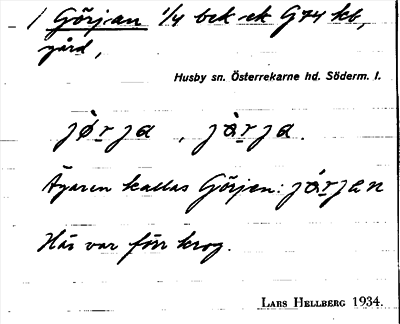 1 Görjan 1/4 bck ek G74 kb,
gård,
Husby sn. Österrekarne hd. Söderm. l.
jø̀rja, jò̱rja.
Ägaren kallas Görjen: jó̱rjan
Här var förr krog.
LARS HELLBERG 1934.